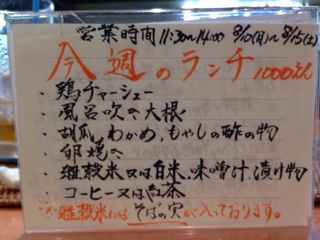 営業時間 11:30~14:00 8/10(月)~8/15(土)
今週のランチ 1000えん
・鶏チャーシュー
・風呂吹き大根
・胡瓜、わかめ、もやしの酢の物
・卵焼き
・雑穀米又は白米、味噌汁、漬け物
・コーヒー又は紅茶
※雑穀米には そばの実 が入っております。